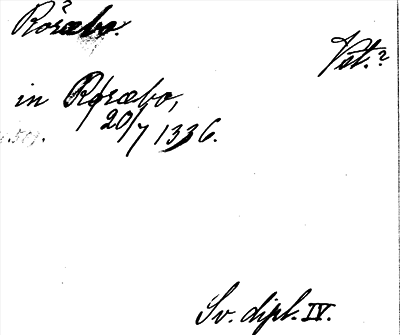 Röræbo.
Vet.?
in Røræbo,
20/7 1336.
Sv. dipl. IV.